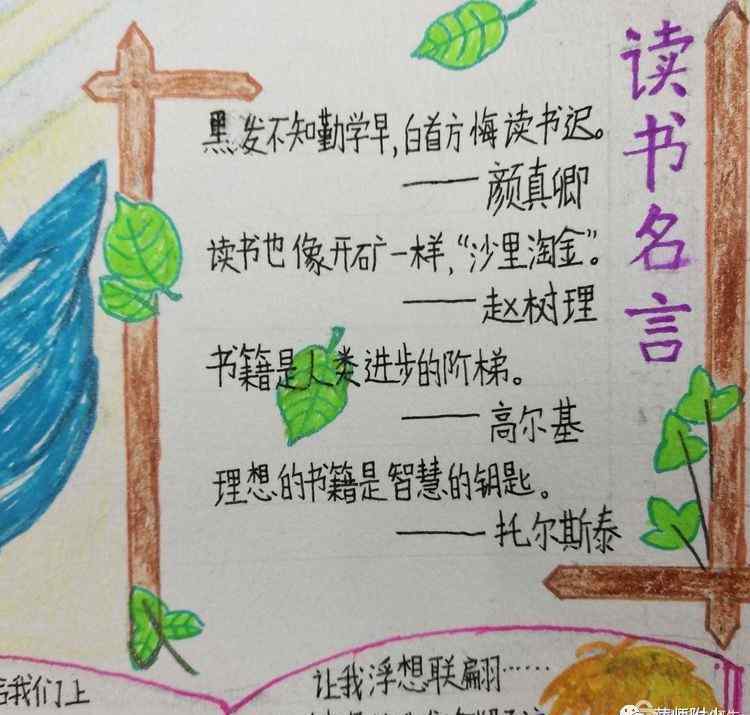 读书名言
黑发不知勤学早,白首方悔读书迟。
——颜真卿
读书也像开矿一样,“沙里淘金”。
——赵树理
书籍是人类进步的阶梯。
——高尔基
理想的书籍是智慧的钥匙。
——托尔斯泰
我们上
让我浮想联翩……